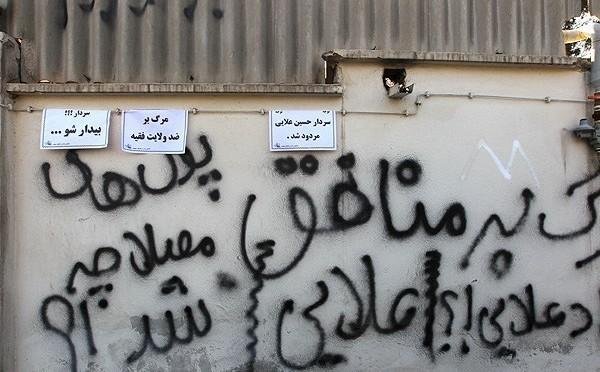 سردار حسین علایی
مردود شد .
مرگ بر
ضد ولایت فقیه
سردار !!!
بیدار شو ...
رگ بر منافق
د علایی !؟
علایی
پول های
مصلا چه
شد ؟!